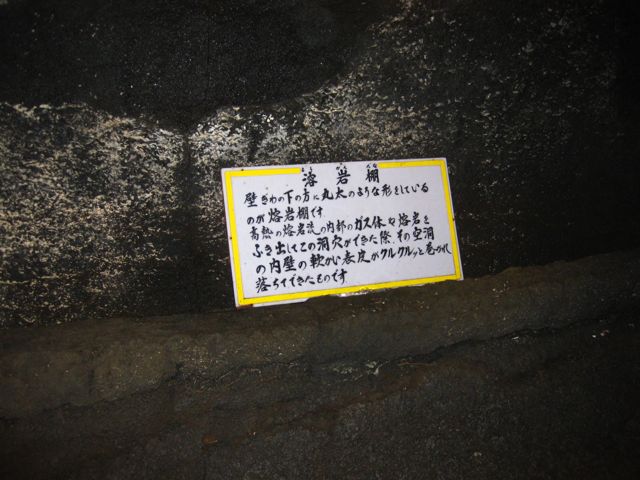 溶岩棚
壁ぎわの下の方に丸太のような形をしている
のが熔岩棚です
高熱の熔岩流の内部のガス体や熔岩を
ふき出してこの洞穴ができた際、その空洞
の内壁の軟かい表皮がクルクルッと巻つかれ
落ちてできたものです